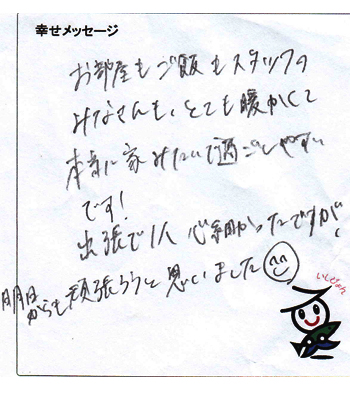 幸せメッセージ
お部屋もご飯もスタッフの
みなさんも、とても暖かくて
本当に家みたいで過ごしやすい
です!
出張で1人 心細かったですが、
明日からも頑張ろうと思いました
いしじゅん